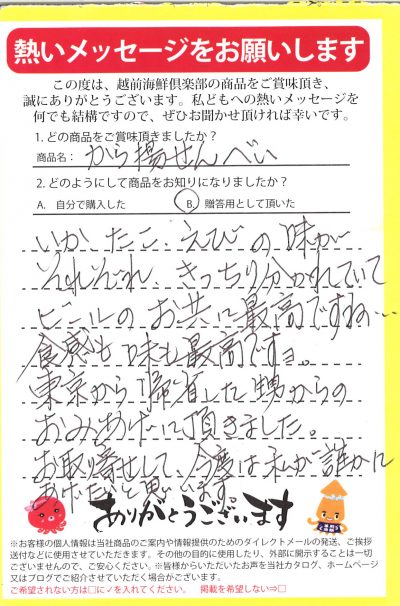 熱いメッセージをお願いします
この度は、越前海鮮倶楽部の商品をご賞味頂き、
誠にありがとうございます。私どもへの熱いメッセージを
何でも結構ですので、ぜひお聞かせ頂ければ幸いです。
1. どの商品をご賞味頂きましたか？
商品名： から揚せんべい
2. どのようにして商品をお知りになりましたか？
A. 自分で購入した B. 贈答用として頂いた
いか、たこ、えびの味が
それぞれ、きっちり分かれていて
ビールのお共に最高ですね…
食感も味も最高ですョ。
東京から帰省した甥からの
おみあげに頂きました。
お取り寄せして、今度は私が誰かに
あげたいと思います。
ありがとうございます
※お客様の個人情報は当社商品のご案内や情報提供のためのダイレクトメールの発送、ご挨拶
送付などに使用させていただきます。その他の目的に使用したり、外部に開示することは一切
ございませんので、ご安心ください。※皆様からいただいたお声を当社カタログ、ホームページ
又はブログでご紹介させていただく場合がございます。
ご希望されない方は□に✓を入れてください。 掲載を希望しない⇒□